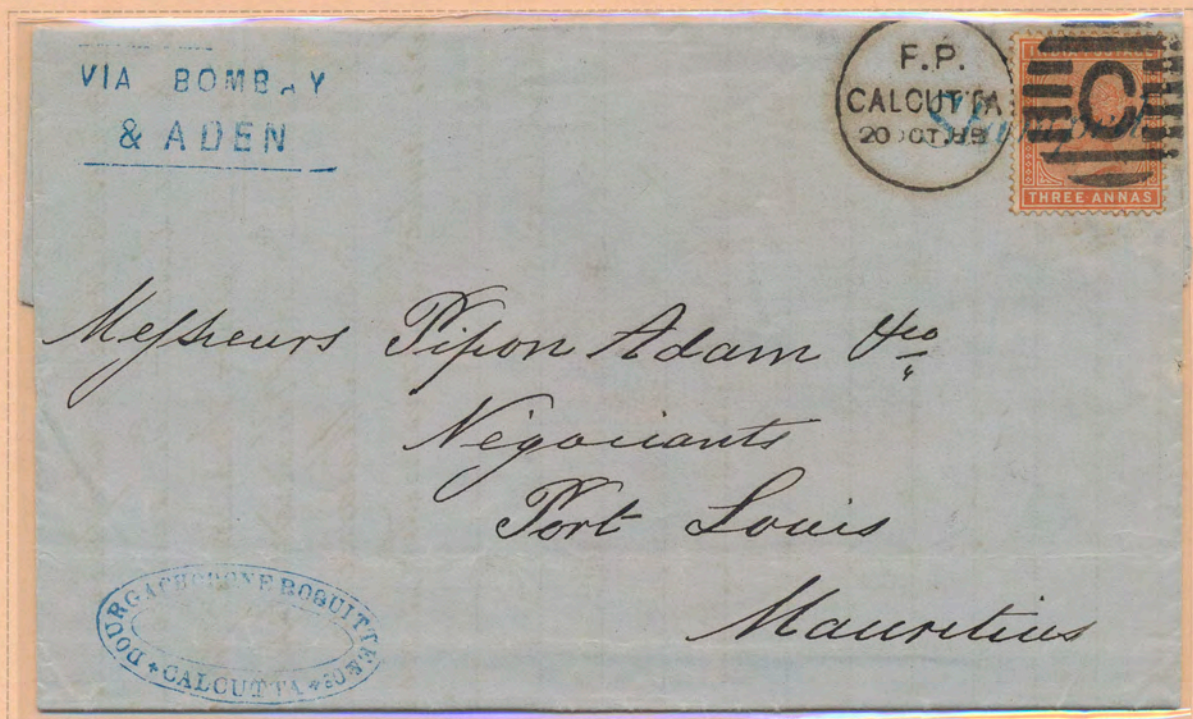 VIA BOMBAY
& ADEN
F.P.
CALCUTTA
20 OCT. 85
C
THREE ANNAS
Messieurs Pipon Adam & Co
Négociants
Port Louis
Mauritius
DOURGACHORONE ROQUITTE & CO
CALCUTTA